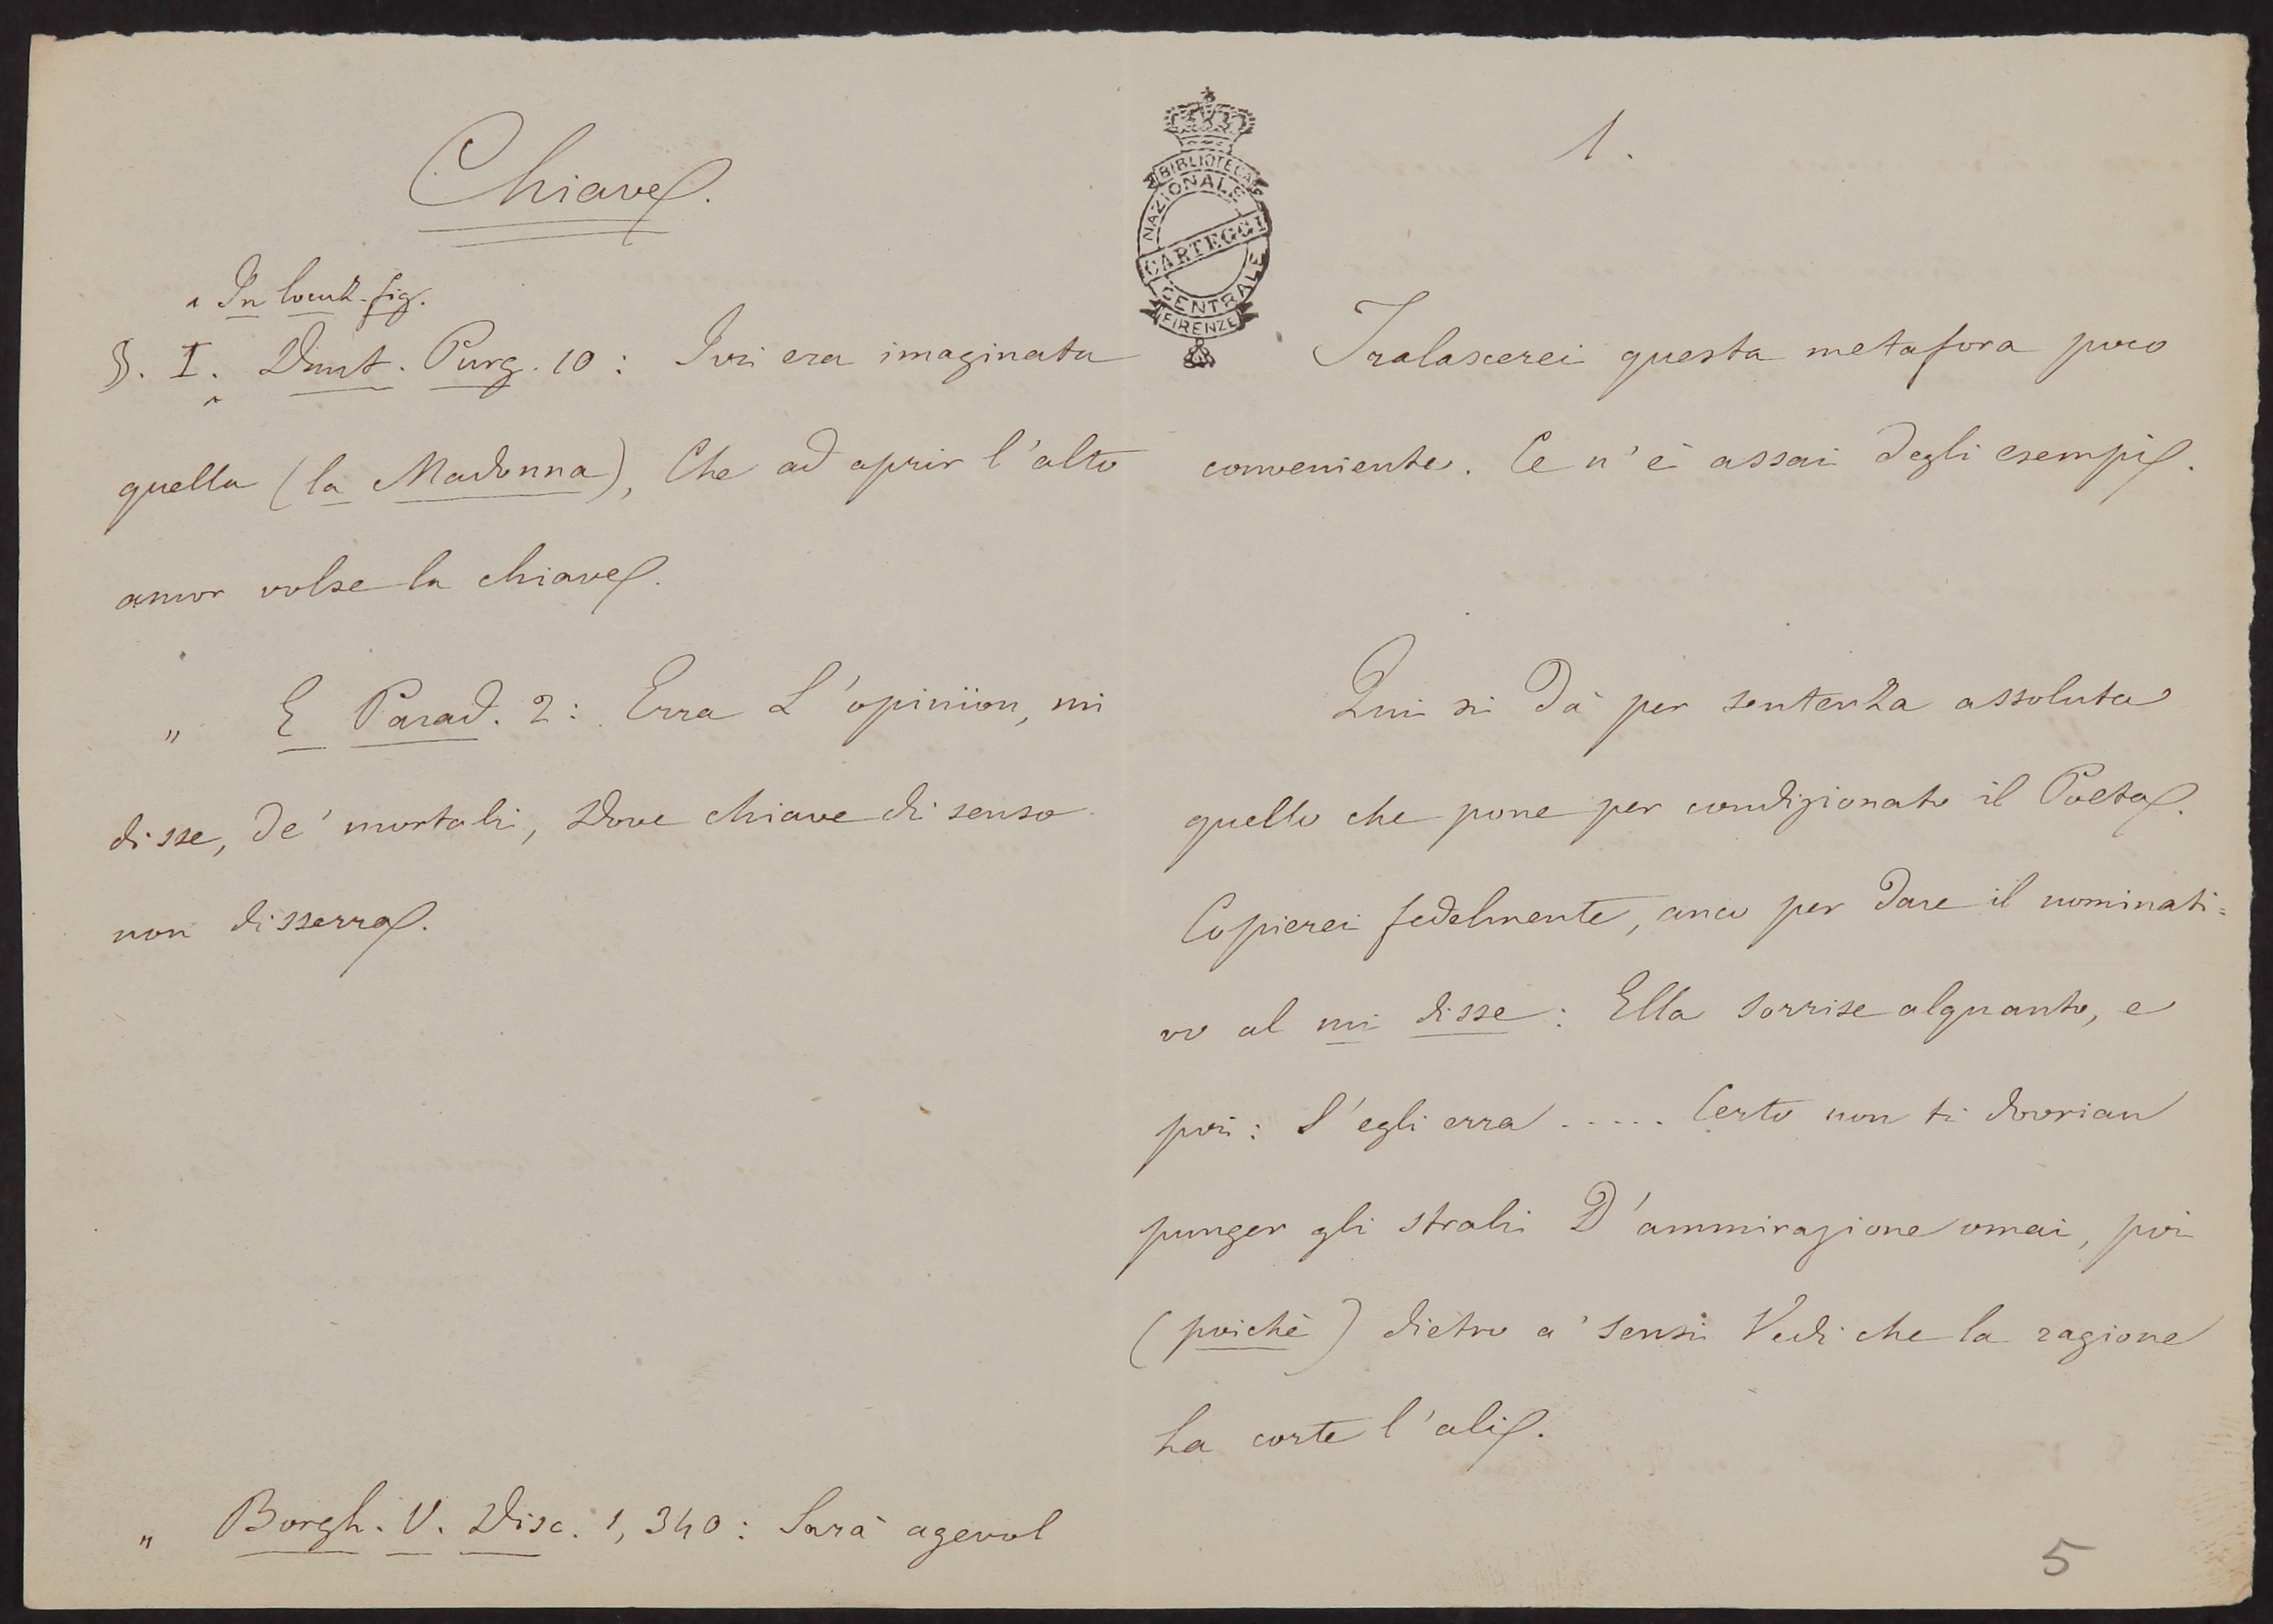 Chiave.
^ In locuz. fig.
§. I. Dant. Purg. 10: Ivi era imaginata
quella (la Madonna), Che ad aprir l'alto
amor volse la chiave.
" E Parad. 2: Erra L'opinïon, mi
disse, de' mortali, Dove chiave di senso
non disserra.
" Borgh. V. Disc. 1, 340: Sarà agevol
BIBLIOTECA
NAZIONALE
CARTEGGI
CENTRALE
FIRENZE
1.
Tralascerei questa metafora poco
conveniente. Ce n'è assai degli esempi.
Qui si dà per sentenza assoluta
quello che pone per condizionato il Poeta.
Copierei fedelmente, anco per dare il nominati=
vo al mi disse: Ella sorrise alquanto, e
poi: S'egli erra ..... Certo non ti dovrian
punger gli strali D'ammirazione omai, poi
(poichè) dietro a' sensi Vedi che la ragione
ha corte l'ali.
5